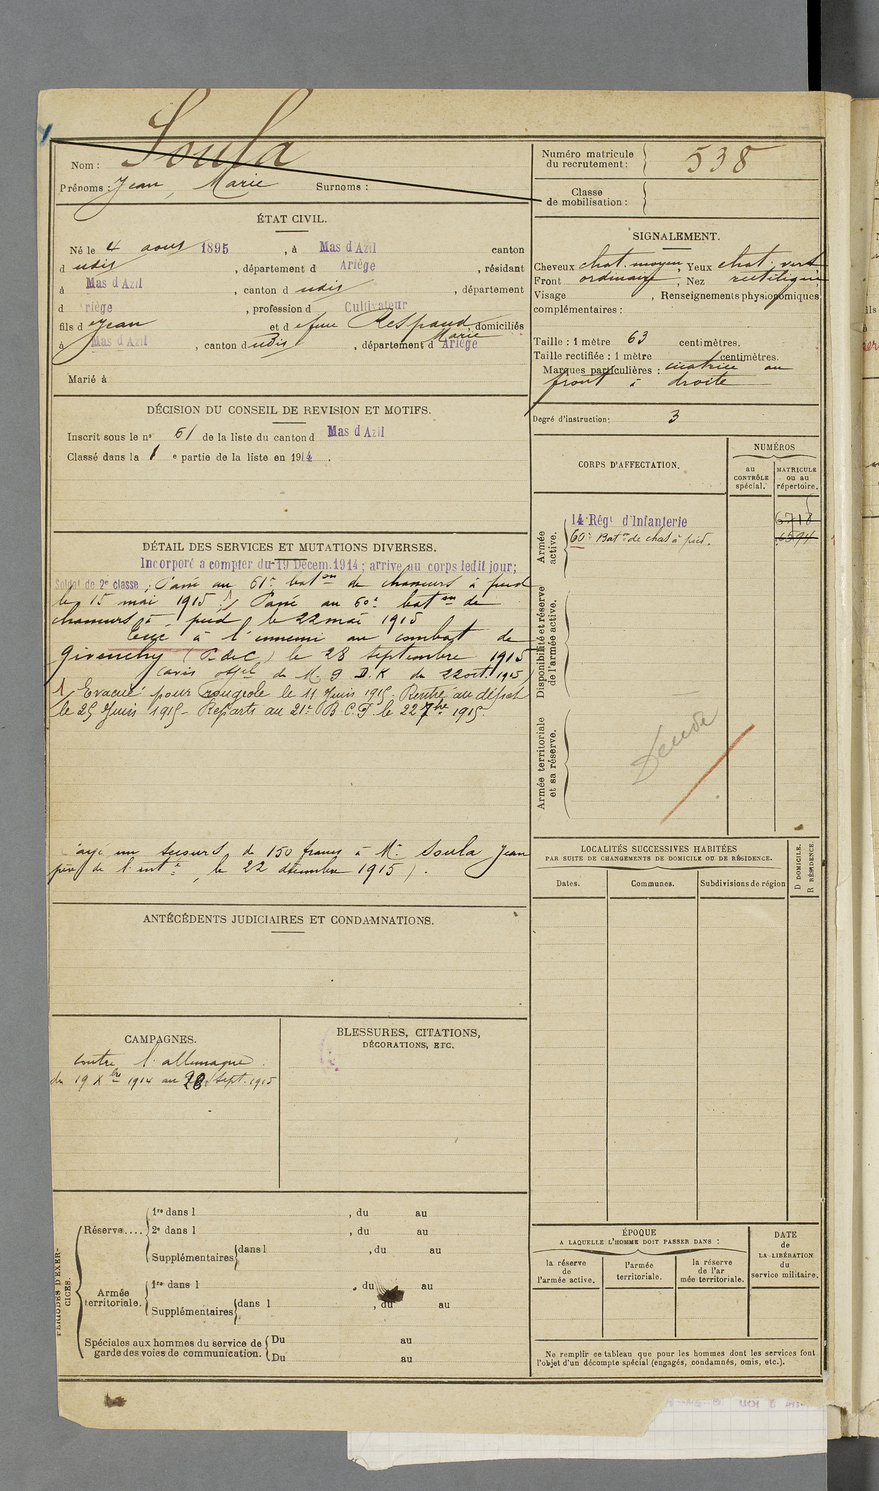 Nom : Soula
Prénoms : Jean, Marie Surnoms :
Numéro matricule du recrutement : 538
Classe de mobilisation :
ÉTAT CIVIL.
Né le 4 aous 1895, à Mas d'Azil canton
d udis, département d Ariège, résidant
à Mas d'Azil, canton d udis, département
d Ariège, profession d Cultivateur
fils d e Jean et d e feue Respaud Marie, domiciliés
à Mas d'Azil, canton d udis, département d Ariège
Marié à
SIGNALEMENT.
Cheveux chat. moyen, Yeux chat. vert
Front ordinaire, Nez rectiligne
Visage , Renseignements physionomiques
complémentaires :
Taille : 1 mètre 63 centimètres.
Taille rectifiée : 1 mètre centimètres.
Marques particulières : cicatrice au
front à droite
Degré d'instruction: 3
DÉCISION DU CONSEIL DE REVISION ET MOTIFS.
Inscrit sous le n° 61 de la liste du canton d Mas d'Azil
Classé dans la 1 e partie de la liste en 1914.
DÉTAIL DES SERVICES ET MUTATIONS DIVERSES.
Incorporé a compter du 19 Décem. 1914; arrivé au corps ledit jour;
Soldat de 2e classe; Passé au 61e baton de chasseurs à pied
le 15 mai 1915; Passé au 60e baton de
chasseurs à pied le 22 mai 1915
Tué à l'ennemi au combat de
Givenchy (P. de C) le 28 septembre 1915
(avis offel de M. G D.K du 22 oct. 1915)
1 Evacué pour rougeole le 11 Juin 1915. Rentré au dépot
le 25 Juin 1915 - Reparti au 21e B.C.P. le 22 7bre 1915.
un secours de 150 francs à Mr Soula Jean
père de l'inté, le 22 décembre 1915).
CORPS D'AFFECTATION.
NUMÉROS
au CONTRÔLE spécial.
MATRICULE ou au répertoire.
Armée active.
14 Régt d'Infanterie 6718
60e Baton de chas à pied. 6594
Disponibilité et réserve de l'armée active.
Armée territoriale et sa réserve.
LOCALITÉS SUCCESSIVES HABITÉES
PAR SUITE DE CHANGEMENTS DE DOMICILE OU DE RÉSIDENCE.
Dates. Communes. Subdivisions de région
D DOMICILE.
R RÉSIDENCE.
ANTÉCÉDENTS JUDICIAIRES ET CONDAMNATIONS.
CAMPAGNES.
contre l'allemagne
du 19 Xbre 1914 au 28 Sept. 1915
BLESSURES, CITATIONS,
DÉCORATIONS, ETC.
PÉRIODES D'EXERCICES.
Réserve....
1re dans l , du au
2e dans l , du au
Supplémentaires dans l , du au
Armée territoriale.
1re dans l , du au
Supplémentaires dans l , du au
Spéciales aux hommes du service de garde des voies de communication.
Du au
Du au
ÉPOQUE
A LAQUELLE L'HOMME DOIT PASSER DANS :
la réserve de l'armée active.
l'armée territoriale.
la réserve de l'ar mée territoriale.
DATE de LA LIBÉRATION du service militaire.
Ne remplir ce tableau que pour les hommes dont les services font
l'objet d'un décompte spécial (engagés, condamnés, omis, etc.).